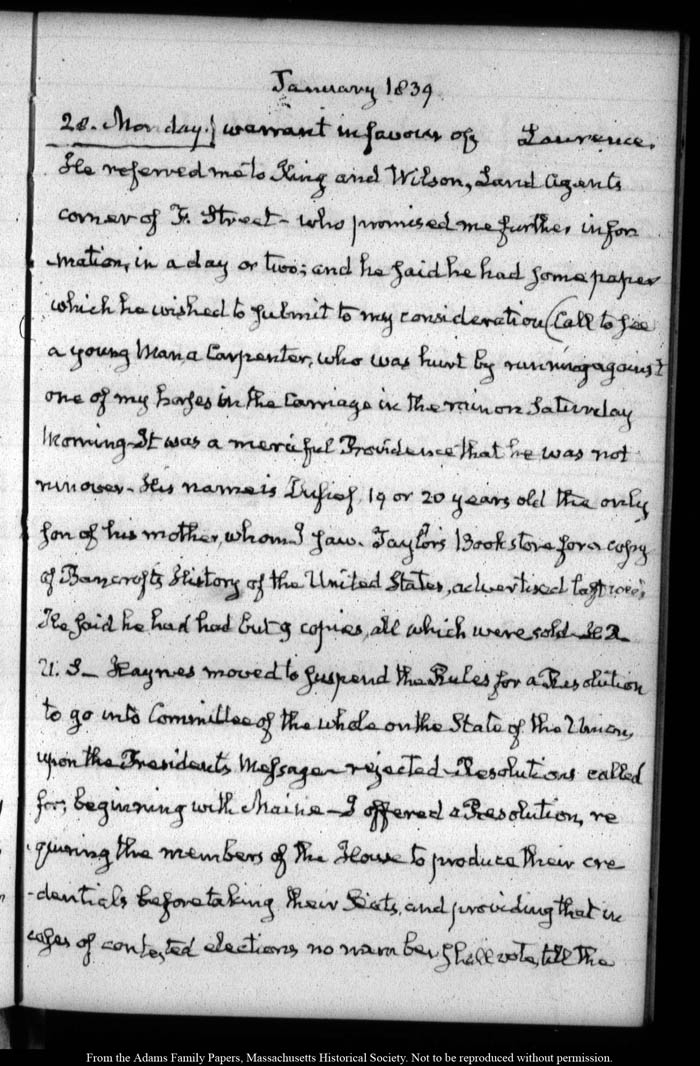 January 1839
28. Monday.} warrant in favour of Laurence.
He referred me to King and Wilson, Land Agents
corner of F. Street – who promised me further infor
-mation, in a day or two; and he said he had some paper
which he wished to submit to my consideration (Call to see
a young Man, a Carpenter, who was hurt by running against
one of my horses in the Carriage in the rain on Saturday
Morning – It was a merciful Providence that he was not
run over – His name is 19 or 20 years old the only
son of his mother, whom I saw. Taylor's Bookstore for a copy
of Bancroft's History of the United States, advertised last
He said he had had but 9 copies, all which were sold – H.R.
U.S – Haynes moved to suspend the Rules for a Resolution
to go into Committee of the whole on the State of the Union,
upon the President's Message – rejected – Resolutions called
for; beginning with Maine – I offered a Resolution, re
-quiring the members of the House to produce their cre
-dentials before taking their Seats, and providing that in
cases of contested elections no member shall vote, till the
From the Adams Family Papers, Massachusetts Historical Society. Not to be reproduced without permission.